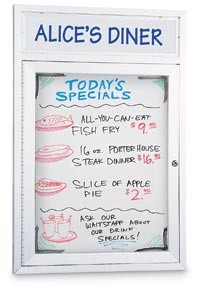 ALICE'S DINER
TODAY'S
SPECIALS
ALL-YOU-CAN-EAT
FISH FRY $9.95
16 oz. PORTERHOUSE
STEAK DINNER $16.95
SLICE OF APPLE
PIE $2.95
ASK OUR
WAITSTAFF ABOUT
OUR DRINK
SPECIALS!